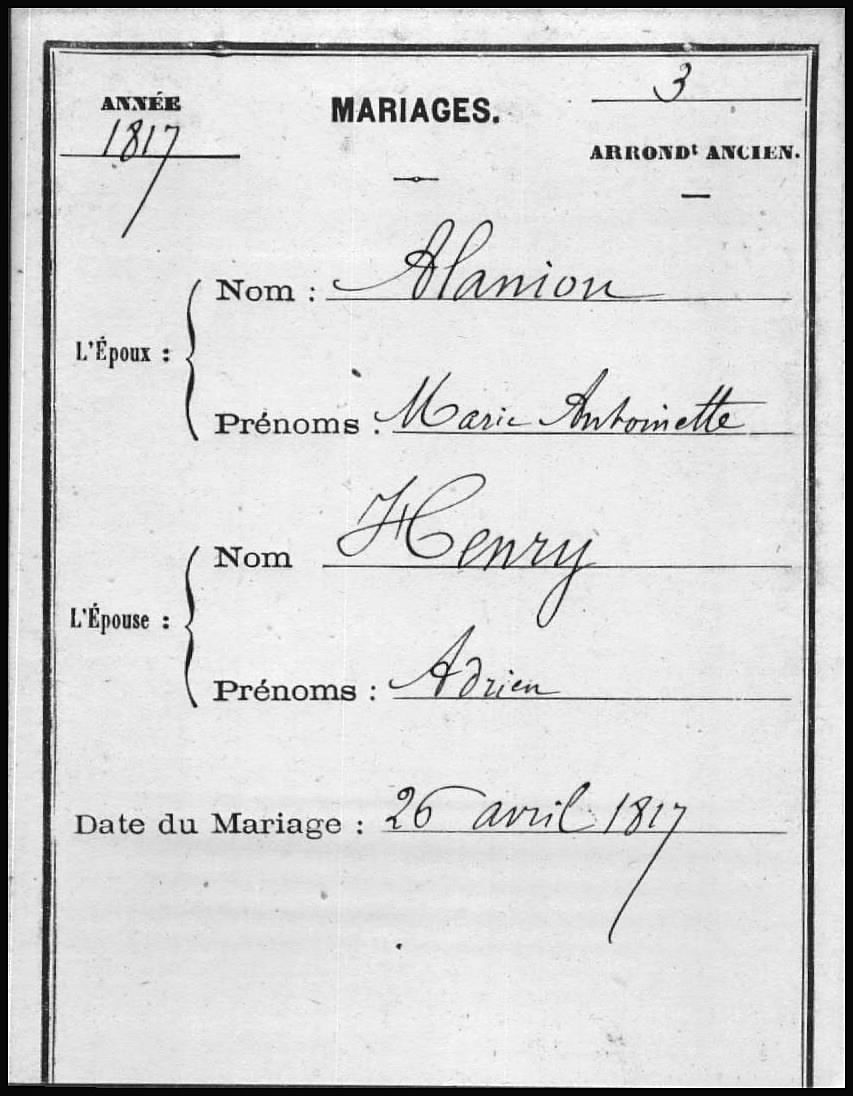 ANNÉE
1817
MARIAGES.
3
ARRONDt ANCIEN.
L'Époux :
Nom : Alanion
Prénoms : Marie Antoinette
L'Épouse :
Nom Henry
Prénoms : Adrien
Date du Mariage : 26 avril 1817